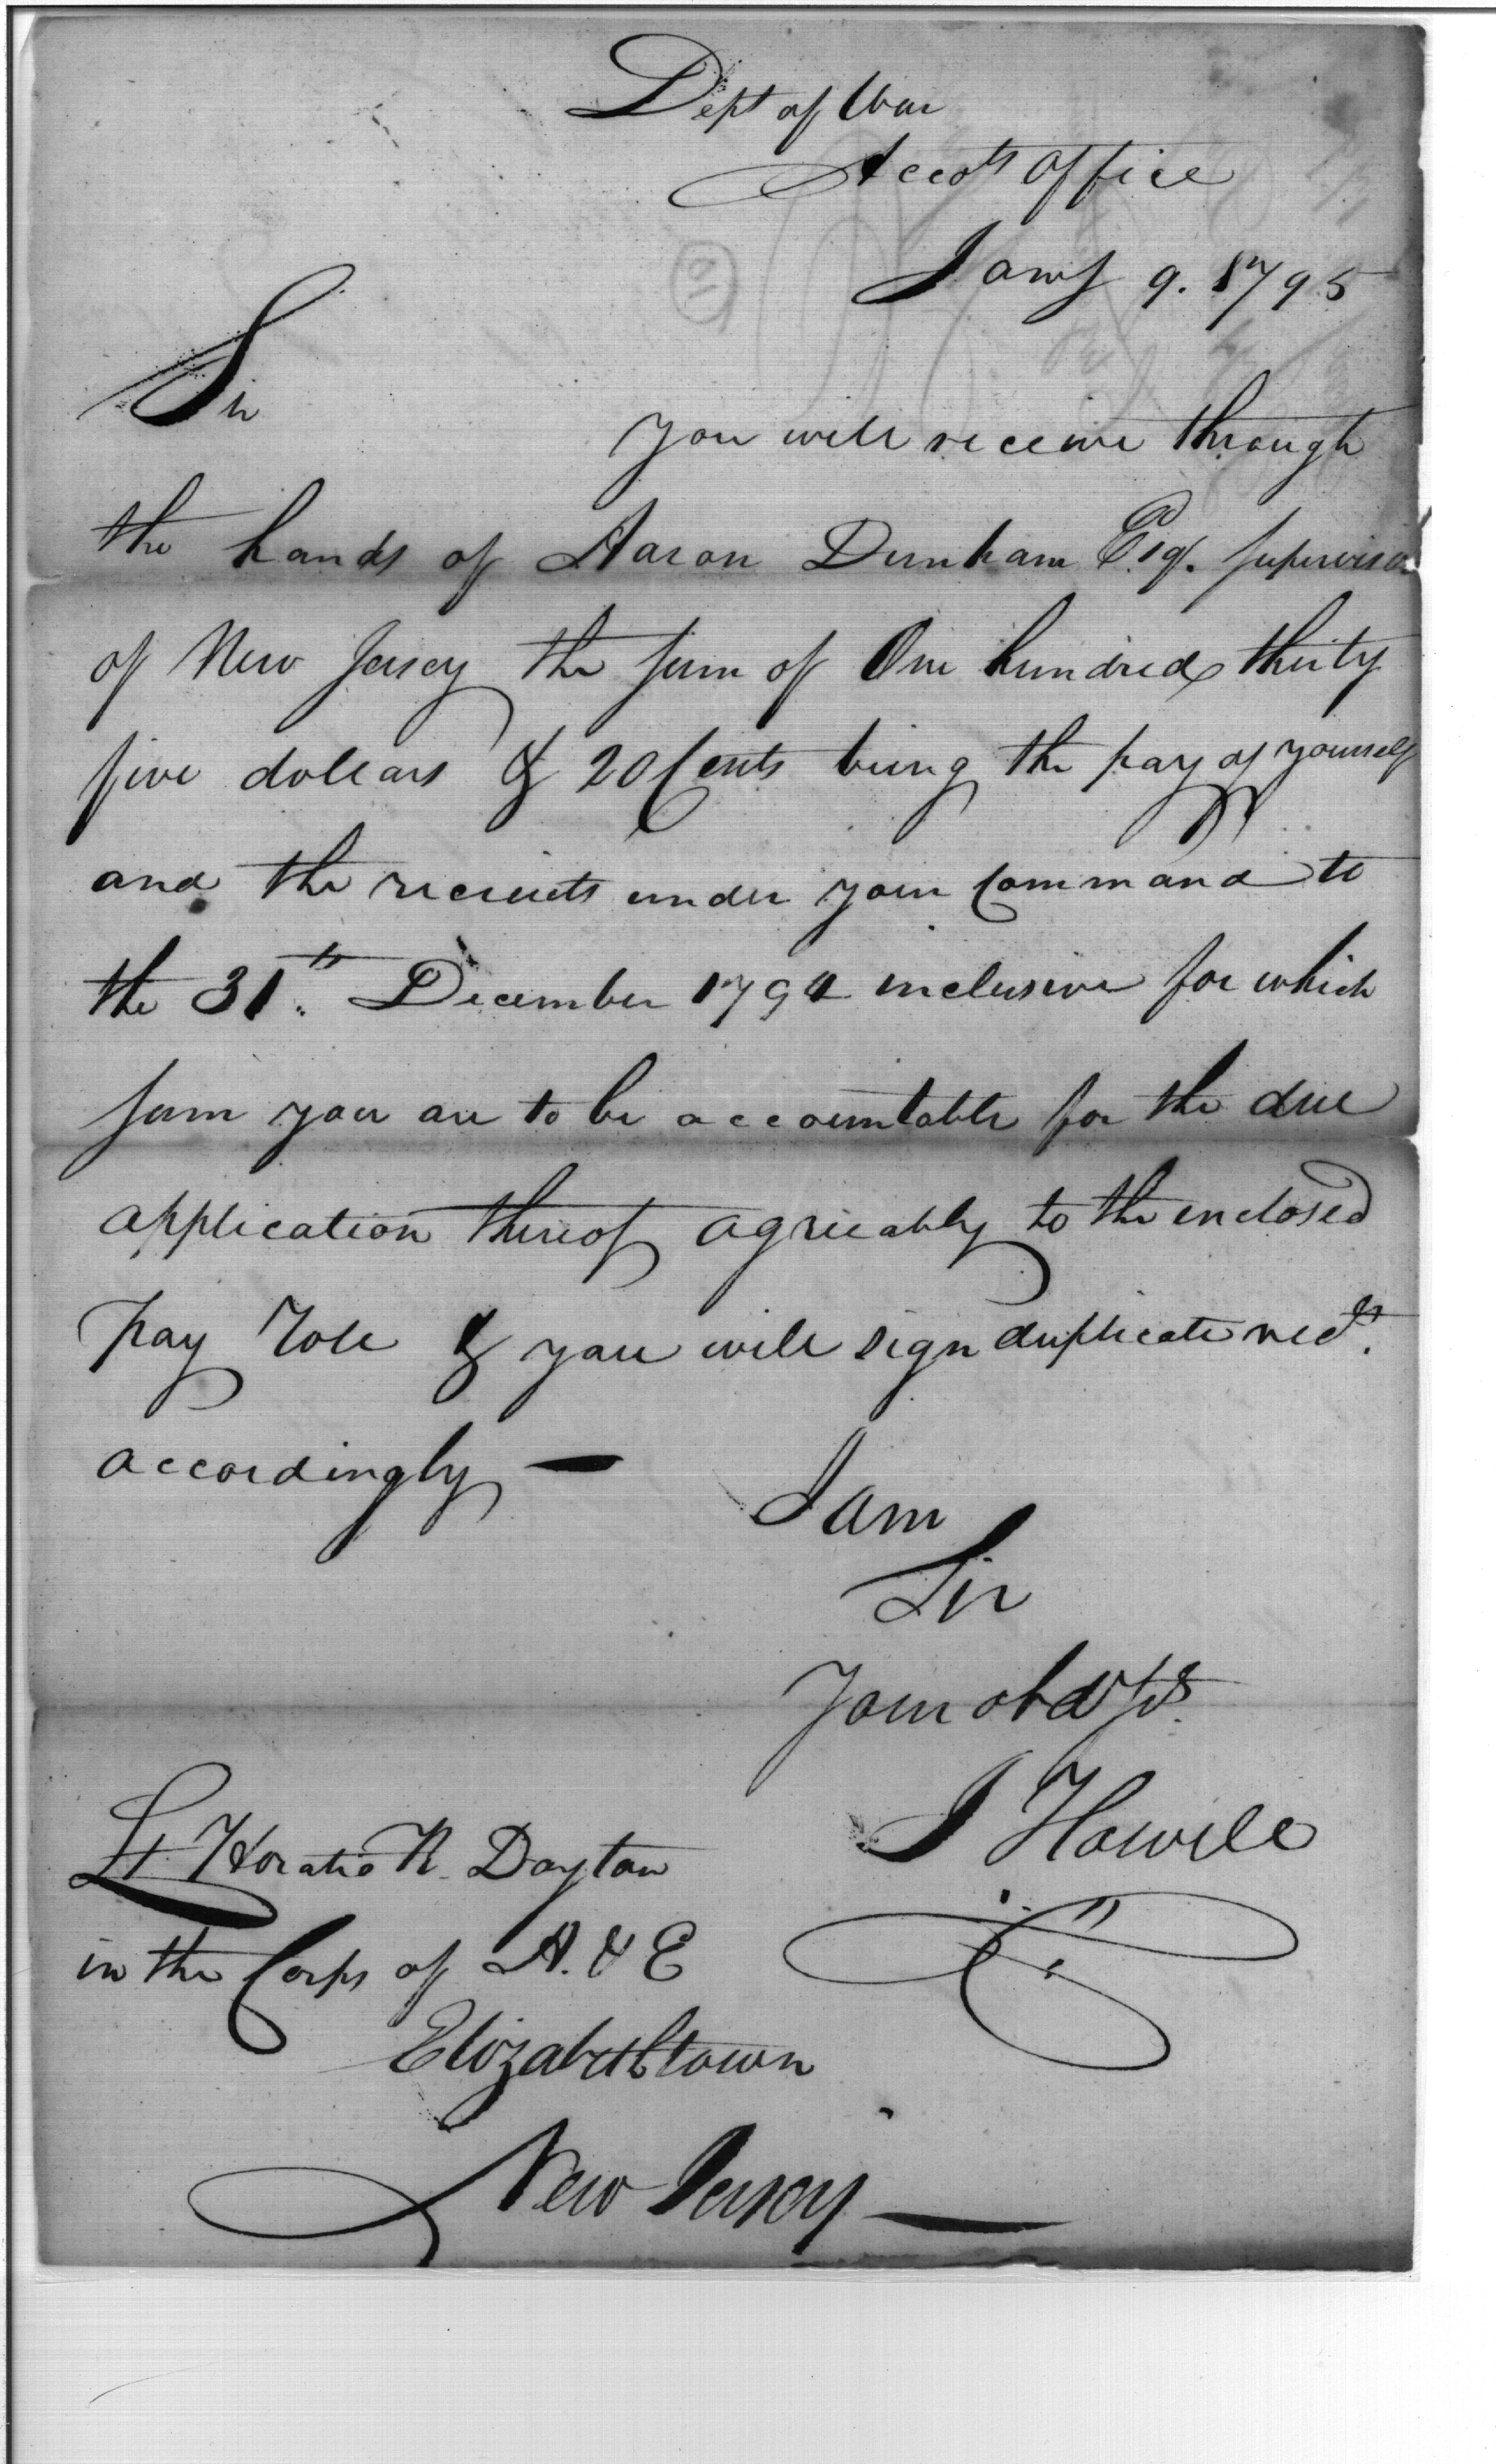 Dept of War
Accots Office
Jany 9. 1795
Sir
you will receive through
the hands of Aaron Dunham Esqr. Supervisor
of New Jersey the sum of One hundred thirty
five dollars & 20 Cents being the pay of yourself
and the recruits under your Command to
the 31th. December 1794 inclusive for which
sum you are to be accountable for the due
application thereof agreeably to the enclosed
Pay Role & you will sign duplicate rects.
accordingly —
I am
Sir
Your obd
J Howell
Lt Horatio R. Dayton
in the Corps of A. & E
Elizabethtown
New Jersey —